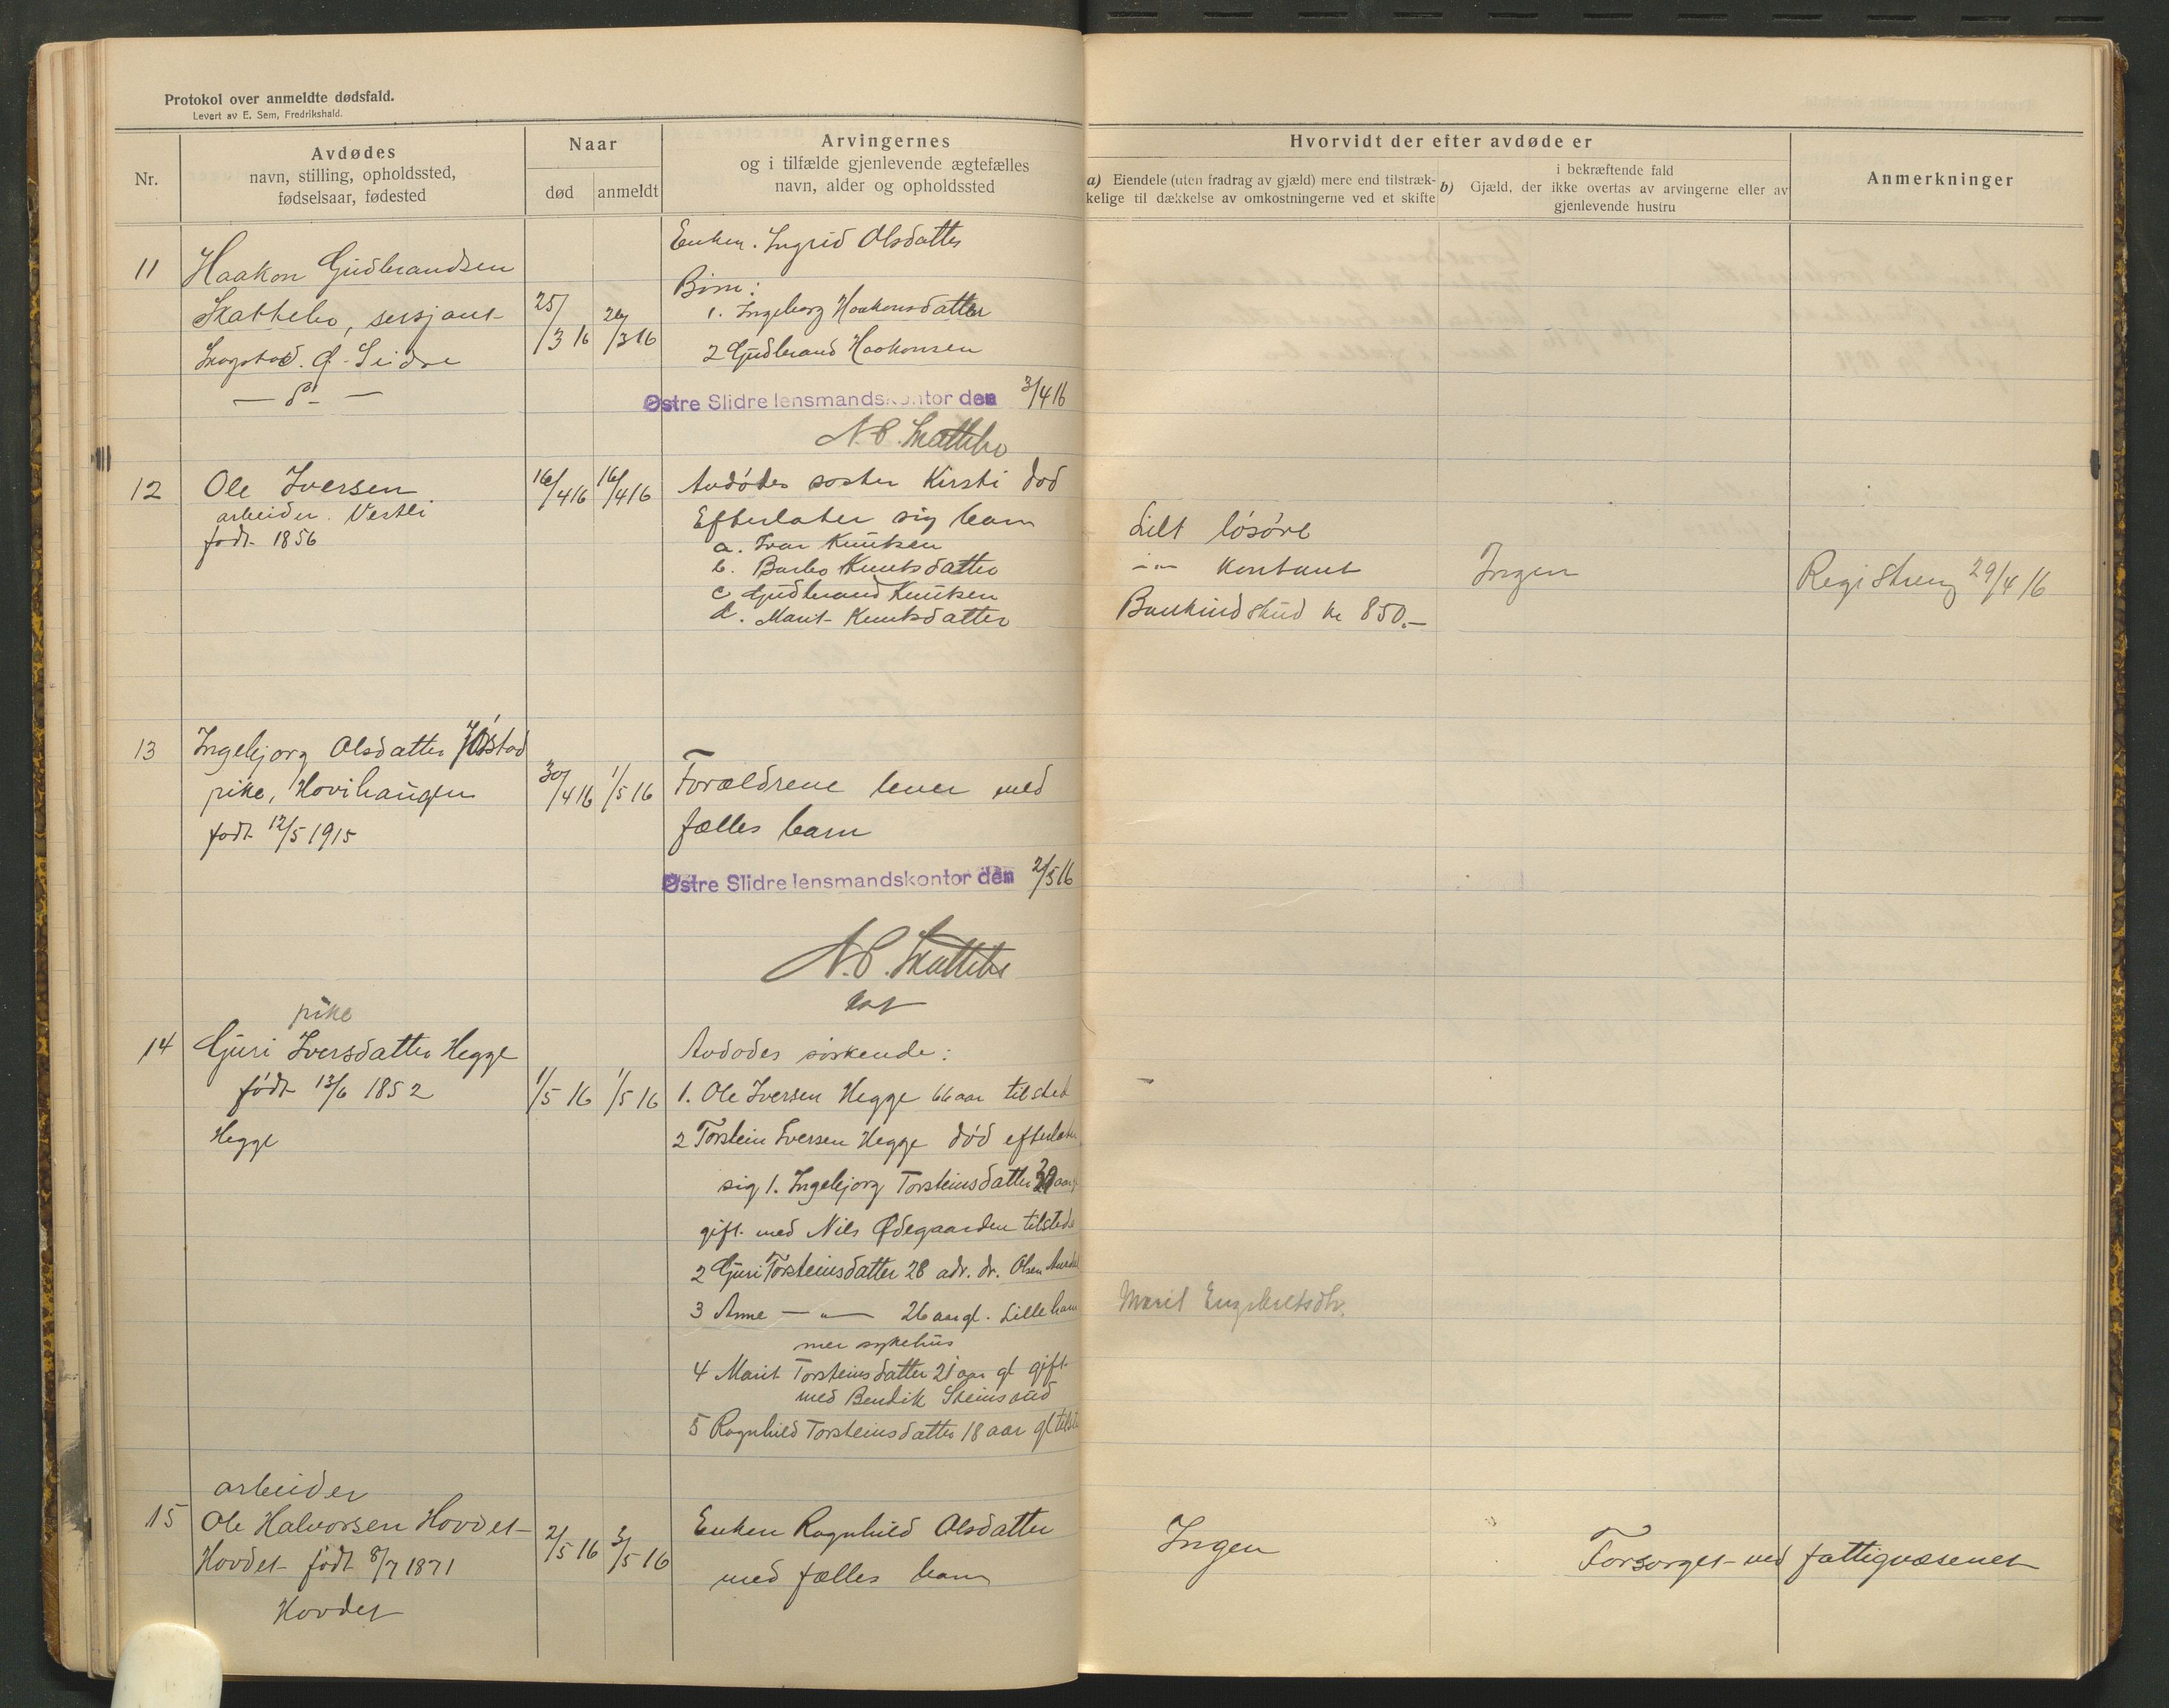 Protokol over anmeldte dødsfald.
Levert av E. Sem, Fredrikshald.
Nr.
Avdødes
navn, stilling, opholdssted,
fødselsaar, fødested
Naar
død
anmeldt
Arvingernes
og i tilfælde gjenlevende ægtefælles
navn, alder og opholdssted
Hvorvidt der efter avdøde er
a) Eiendele (uten fradrag av gjæld) mere end tilstræk-
kelige til dækkelse av omkostningerne ved et skifte
i bekræftende fald
b) Gjæld, der ikke overtas av arvingerne eller av
gjenlevende hustru
Anmerkninger
11
Haakon Gudbrandsen
Skattebo, sersjant
Skogstad. Ø. Slidre
— d° —
25/3 16
26/3 16
Enken. Ingrid Olsdatter
Børn:
1. Ingeborg Haakonsdatter
2 Gudbrand Haakonsen
Østre Slidre lensmandskontor den 3/4 16
N. P. Skattebo
12
Ole Iversen
arbeider. Vestli
født 1856
16/4 16
16/4 16
Avdødes søster Kirsti død
Efterlater sig barn
a. Ivar Knutsen
b. Barbo Knutsdatter
c Gudbrand Knutsen
d. Marit Knutsdatter
Litt løsøre
-"- kontant
Bankindskud kr 850.-
Ingen
Registrering 29/4 16
13
Ingebjorg Olsdatter Jørstad
pike, Hovihaugen
født 12/5 1915
30/4 16
1/5 16
Forældrene lever med
fælles barn
Østre Slidre lensmandskontor den 2/5 16
N. P. Skattebo
14
pike
Guri Iversdatter Hegge
født 13/6 1852
Hegge
1/5 16
1/5 16
Avdødes søskende:
1. Ole Iversen Hegge 66 aar tilsted
2 Torstein Iversen Hegge død efterlater
sig 1. Ingebjorg Torsteinsdatter aar
gift med Nils Ødegaarden tilstede
2 Guri Torsteinsdatter 28 adr. dr. Olsen Aurdal
3 Anne — " — 26 aar gl. Lilleham
mer sykehus
4 Marit Torsteinsdatter 21 aar gl gift
med Bendik Steinsrud
5 Ragnhild Torsteinsdatter 18 aar gl tilste
Marit Engebretsdtr.
15
arbeider
Ole Halvorsen Hovdet
Hovdet født 8/7 1871
Hovdet
2/5 16
3/5 16
Enken Ragnhild Olsdatter
med fælles barn
Ingen
Forsørget ved fattigvæsenet